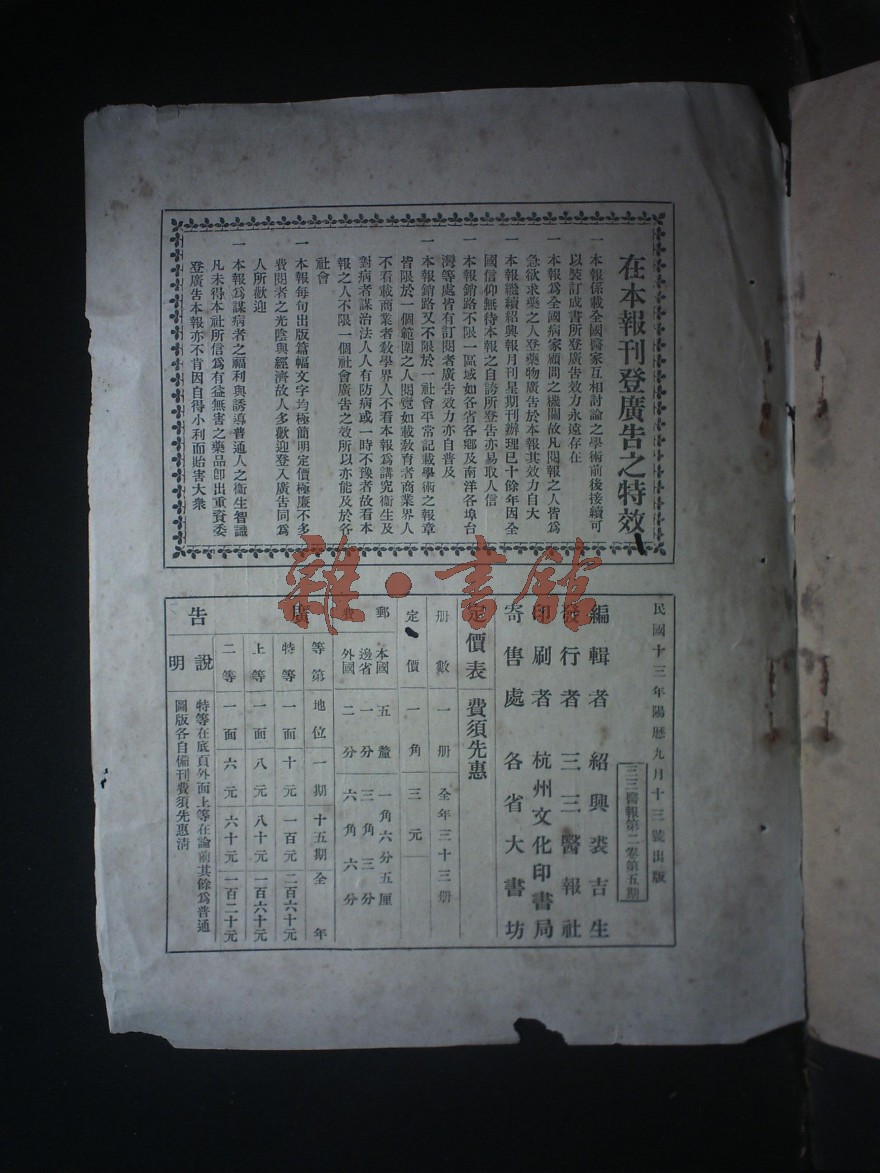 在本報刊登廣告之特效
一本報係載全國醫家互相討論之學術前後接續可
以裝訂成書所登廣告效力永遠存在
一本報爲全國病家顧問之機關故凡閱報之人皆爲
急欲求藥之人登藥物廣告於本報其效力自大
一本報繼續紹興報月刊星期刊辦理已十餘年因全
國信仰無待本報之自誇所登告亦易取人信
一本報銷路不限一區域如各省各鄉及南洋各埠台
灣等處皆有訂閱者廣告效力亦自普及
一本報銷路又不限於一社會平常記載學術之報章
皆限於一個範圍之人閱覽如載教育者商業界人
不看載商業者教學界人不看本報爲講究衞生及
對病者謀治法人人有防病或一時不豫者故看本
報之人不限一個社會廣告之效所以亦能及於各
社會
一本報每旬出版篇幅文字均極簡明定價極廉不多
費閱者之光陰與經濟故人多歡迎登入廣告同爲
人所歡迎
一本報爲謀病者之福利與誘導普通人之衞生智識
凡未得本社所信爲有益無害之藥品卽出重資委
登廣告本報亦不肯因自得小利而貽害大衆
民國十三年陽歷九月十三號出版
三三醫報第二卷第五期
編輯者 紹興裘吉生
發行者 三三醫報社
印刷者 杭州文化印書局
寄售處 各省大書坊
定價表 費須先惠
冊數 一册 全年三十三册
定價 一角 三元
郵費 本國 五釐 一角六分五厘
邊省 一分 三角三分
外國 二分 六角六分
廣告
等第 地位 一期 十五期 全年
特等 一面 十元 一百元 二百六十元
上等 一面 八元 八十元 一百六十元
二等 一面 六元 六十元 一百二十元
說明 特等在底頁外面上等在論前其餘爲普通
圖版各自備刊費須先惠淸
雜·書館